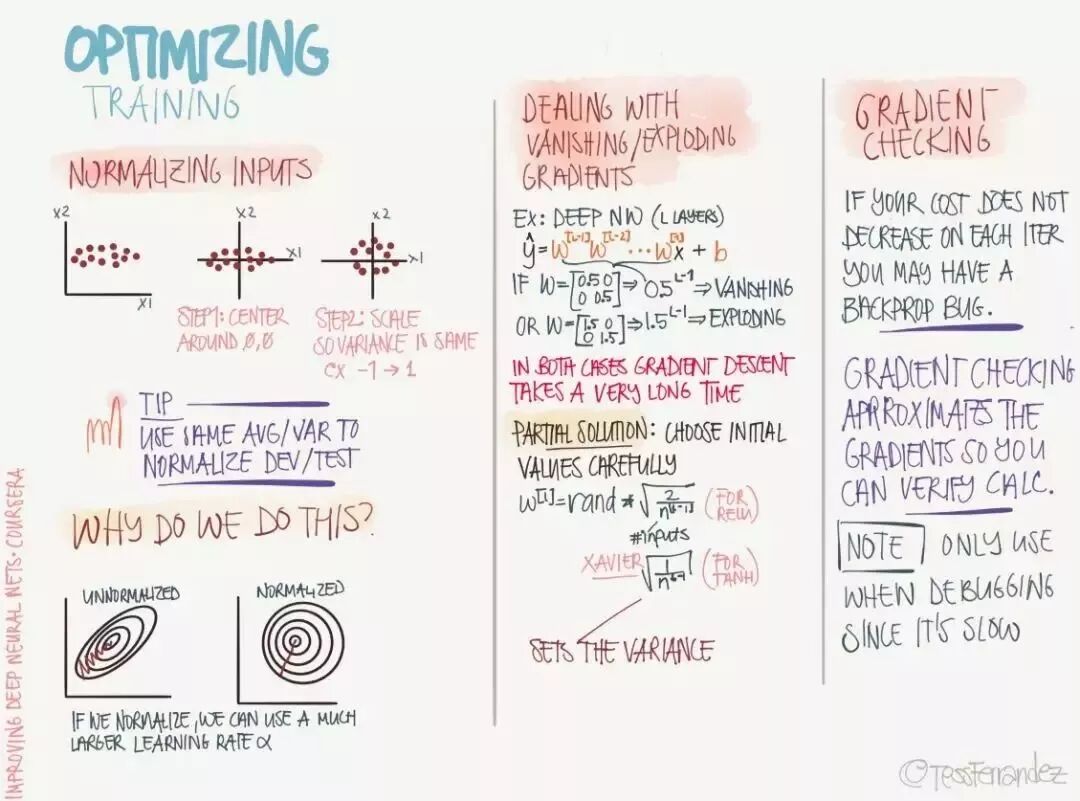 OPTIMIZING
TRAINING
NORMALIZING INPUTS
X2
X1
X2
X1
X2
X1
STEP1: CENTER
AROUND 0,0
STEP2: SCALE
SO VARIANCE IS SAME
EX -1 → 1
TIP
USE SAME AVG/VAR TO
NORMALIZE DEV/TEST
WHY DO WE DO THIS?
UNNORMALIZED
NORMALIZED
IF WE NORMALIZE, WE CAN USE A MUCH
LARGER LEARNING RATE α
DEALING WITH
VANISHING/EXPLODING
GRADIENTS
EX: DEEP NW (L LAYERS)
ŷ = W[L-1] W[L-2] ... W[1] X + b
IF W = [0.5 0 / 0 0.5] ⇒ 0.5^L-1 ⇒ VANISHING
OR W = [1.5 0 / 0 1.5] ⇒ 1.5^L-1 ⇒ EXPLODING
IN BOTH CASES GRADIENT DESCENT
TAKES A VERY LONG TIME
PARTIAL SOLUTION: CHOOSE INITIAL
VALUES CAREFULLY
W[l] = rand * √(2/n[l-1]) (FOR RELU)
#inputs
XAVIER √(1/n[l-1]) (FOR TANH)
SETS THE VARIANCE
GRADIENT
CHECKING
IF YOUR COST DOES NOT
DECREASE ON EACH ITER
YOU MAY HAVE A
BACKPROP BUG.
GRADIENT CHECKING
APPROXIMATES THE
GRADIENTS SO YOU
CAN VERIFY CALC.
NOTE ONLY USE
WHEN DEBUGGING
SINCE IT'S SLOW
IMPROVING DEEP NEURAL NETS · COURSERA
@TessFerrandez